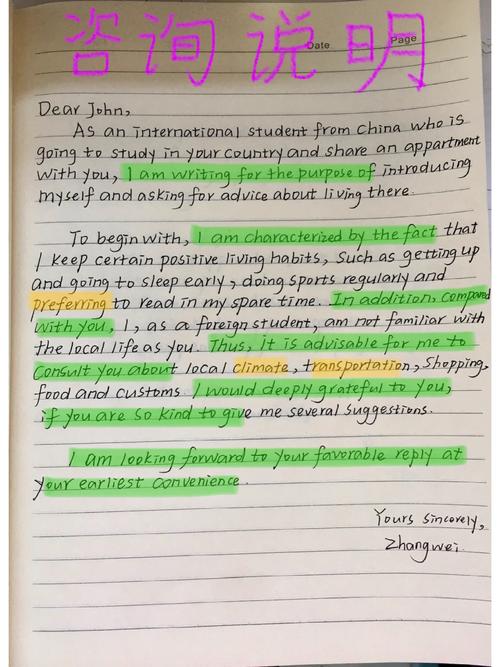 咨询说明
Date
Page
Dear John,
As an international student from China who is
going to study in your country and share an appartment
with you, I am writing for the purpose of introducing
myself and asking for advice about living there.
To begin with, I am characterized by the fact that
I keep certain positive living habits, such as getting up
and going to sleep early, doing sports regularly and
preferring to read in my spare time. In addition, compared
with you, I, as a foreign student, am not familiar with
the local life as you. Thus, it is advisable for me to
consult you about local climate, transportation, shopping,
food and customs. I would deeply grateful to you,
if you are so kind to give me several suggestions.
I am looking forward to your favorable reply at
your earliest convenience.
Yours sincerely,
Zhangwei